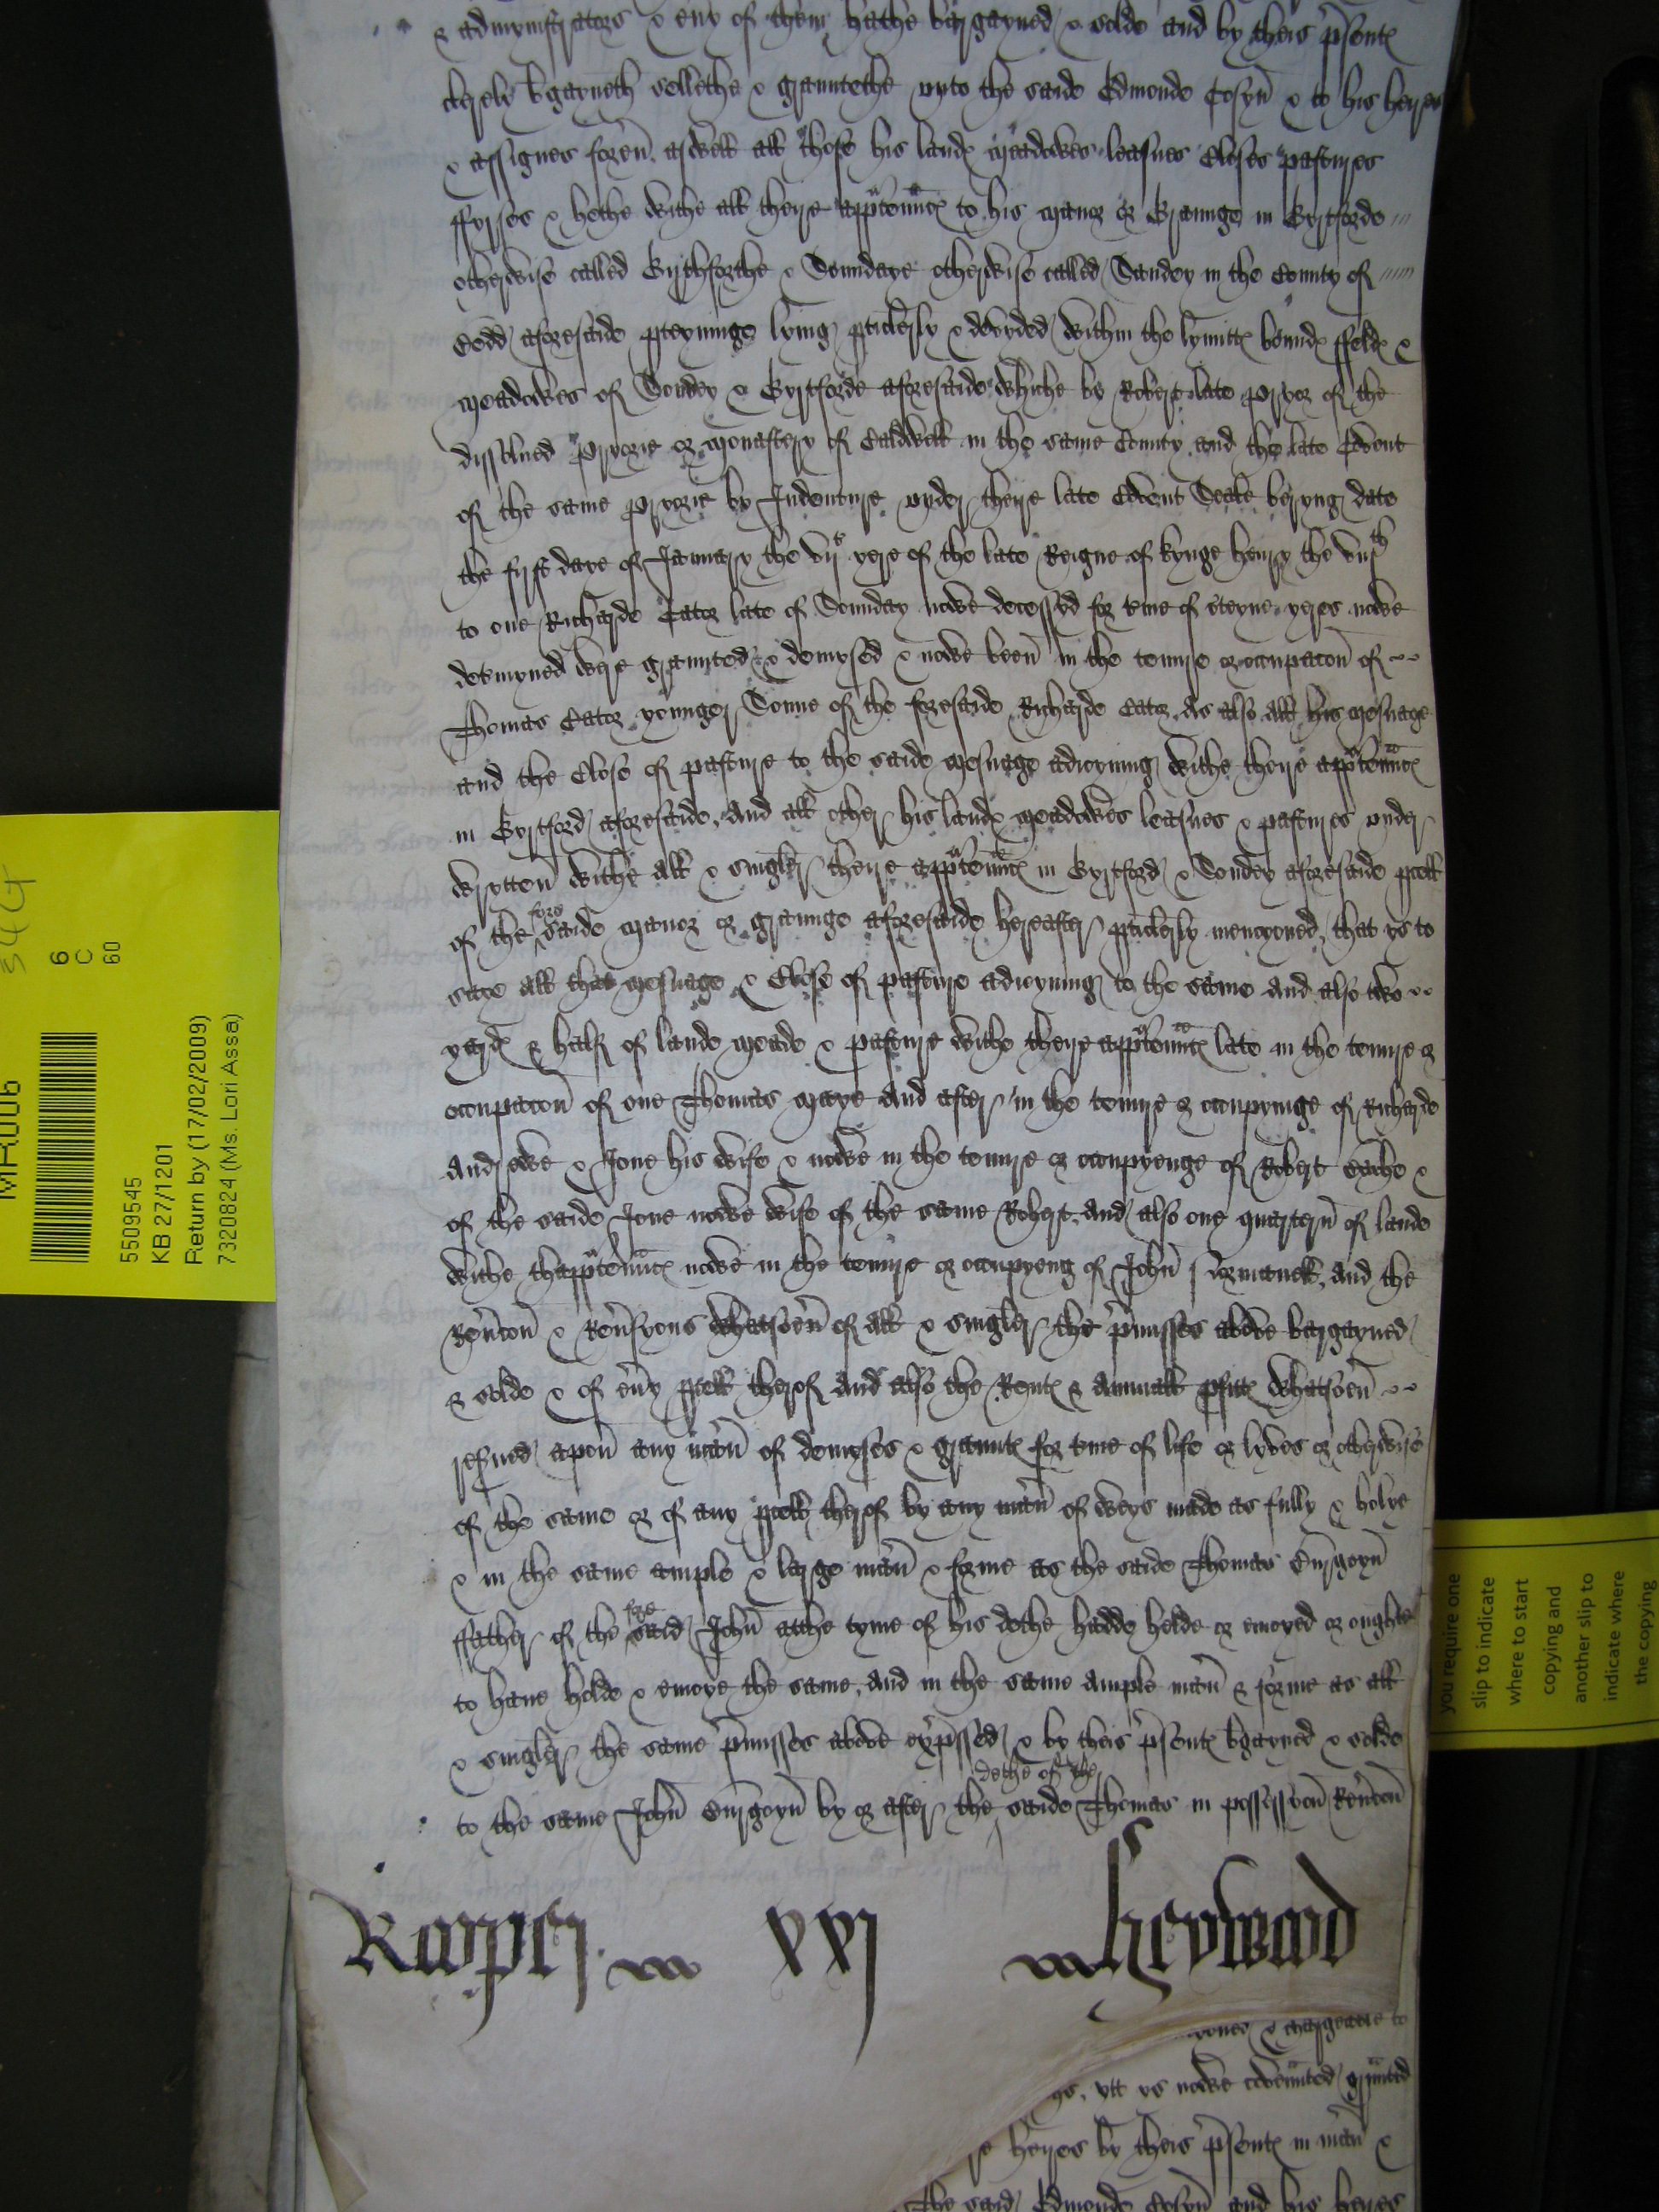 & admynistrators & eny of them hathe bargayned & solde and by theis p'sent
clerely bgayneth sellethe & grauntethe unto the saide Edmonde Cosyn & to his heires
& assignes forev' aswell all those his land meadowes leasues Closes pastures
ffyrses & hethe withe all theire apptenn'c to his manor or Graunge in Gyrtforde
otherwise called Gyrthforthe & Sonndaye otherwise called Sandey in the County of
Bedd aforesaide pteyninge lying pticlerly & devyded within the lymitt bound ffeld &
meadowes of Sondey & Gyrtforde aforesaide whiche by Robert late pryor of the
dissolued Pryorie or monastery of Caldwell in the same County and the late Covent
of the same pryorie by Indenture under theire late Covent Seale beryng date
the fyrst daye of January the vii th yere of the late Reigne of Kynge henry the viij th
to one Richarde Cator late of Sonnday nowe decessyd for t'me of c'teyne yeres nowe
det'myned were graunted & demysed & nowe been in the tenure or occupacon of
Thomas Cator younger Sonne of the foresaide Richarde Cator. As also all his mesuage
and the Close of pasture to the saide mesuage adioynyng withe theire apptenn'c
in Gyrtford aforesaide, And all other his land meadowes leasues & pastures under
wrytten withe all & singler theire apptenn'c in Gyrtford & Sondey aforesaide pcell
of the fore saide manor or graunge aforesaide hereafter pticlerly mencyoned, that ys to
saye all that mesuage & Close of pasture adioynyng to the same And also two
yerd & half of lande meade & pasture withe theire apptenn'c late in the tenure or
occupacon of one Thomas Maye And after in the tenure & occupyinge of Richarde
Andrewe & Jone his wife & nowe in the tenure or occupyenge of Robert &
of the saide Jone nowe wife of the same Robert. And also one quartern of lande
withe thapptenn'c nowe in the tenure or occupyeng of John And the
Rev'con & Rev'syons whatsoev' of all & singler the p'misses above bargayned
& solde & of ev'y pcell therof And also the Rent & Annuall pfitt whatsoev'
res'ued apon any man' of demyses & graunt for t'me of life or lyves or otherwise
of the same or of any pcell therof by any man' of weys made as fully & holye
& in the same ample & large man' & forme as the saide Thomas Burgoyn
ffather of the fore said John atthe tyme of his dethe hadde helde or enioyed or oughte
to haue holde & enioye the same, and in the same ample man' & forme as all
& singler the same p'misses above exp'ssed & by theis p'sent bgayned & solde
to the same John Burgoyn by or after the dethe of the saide Thomas in possessyon Rev'con
Roper XXI heyward
gs, yt ys nowe covennted g'unted
heires by theis p'sent in man' &
The said Edmonde Cosyn and his heires
5464
6
C
60
MR006
5509545
KB 27/1201
Return by (17/02/2009)
7320824 (Ms. Lori Assa)
you require one
slip to indicate
where to start
copying and
another slip to
indicate where
the copying